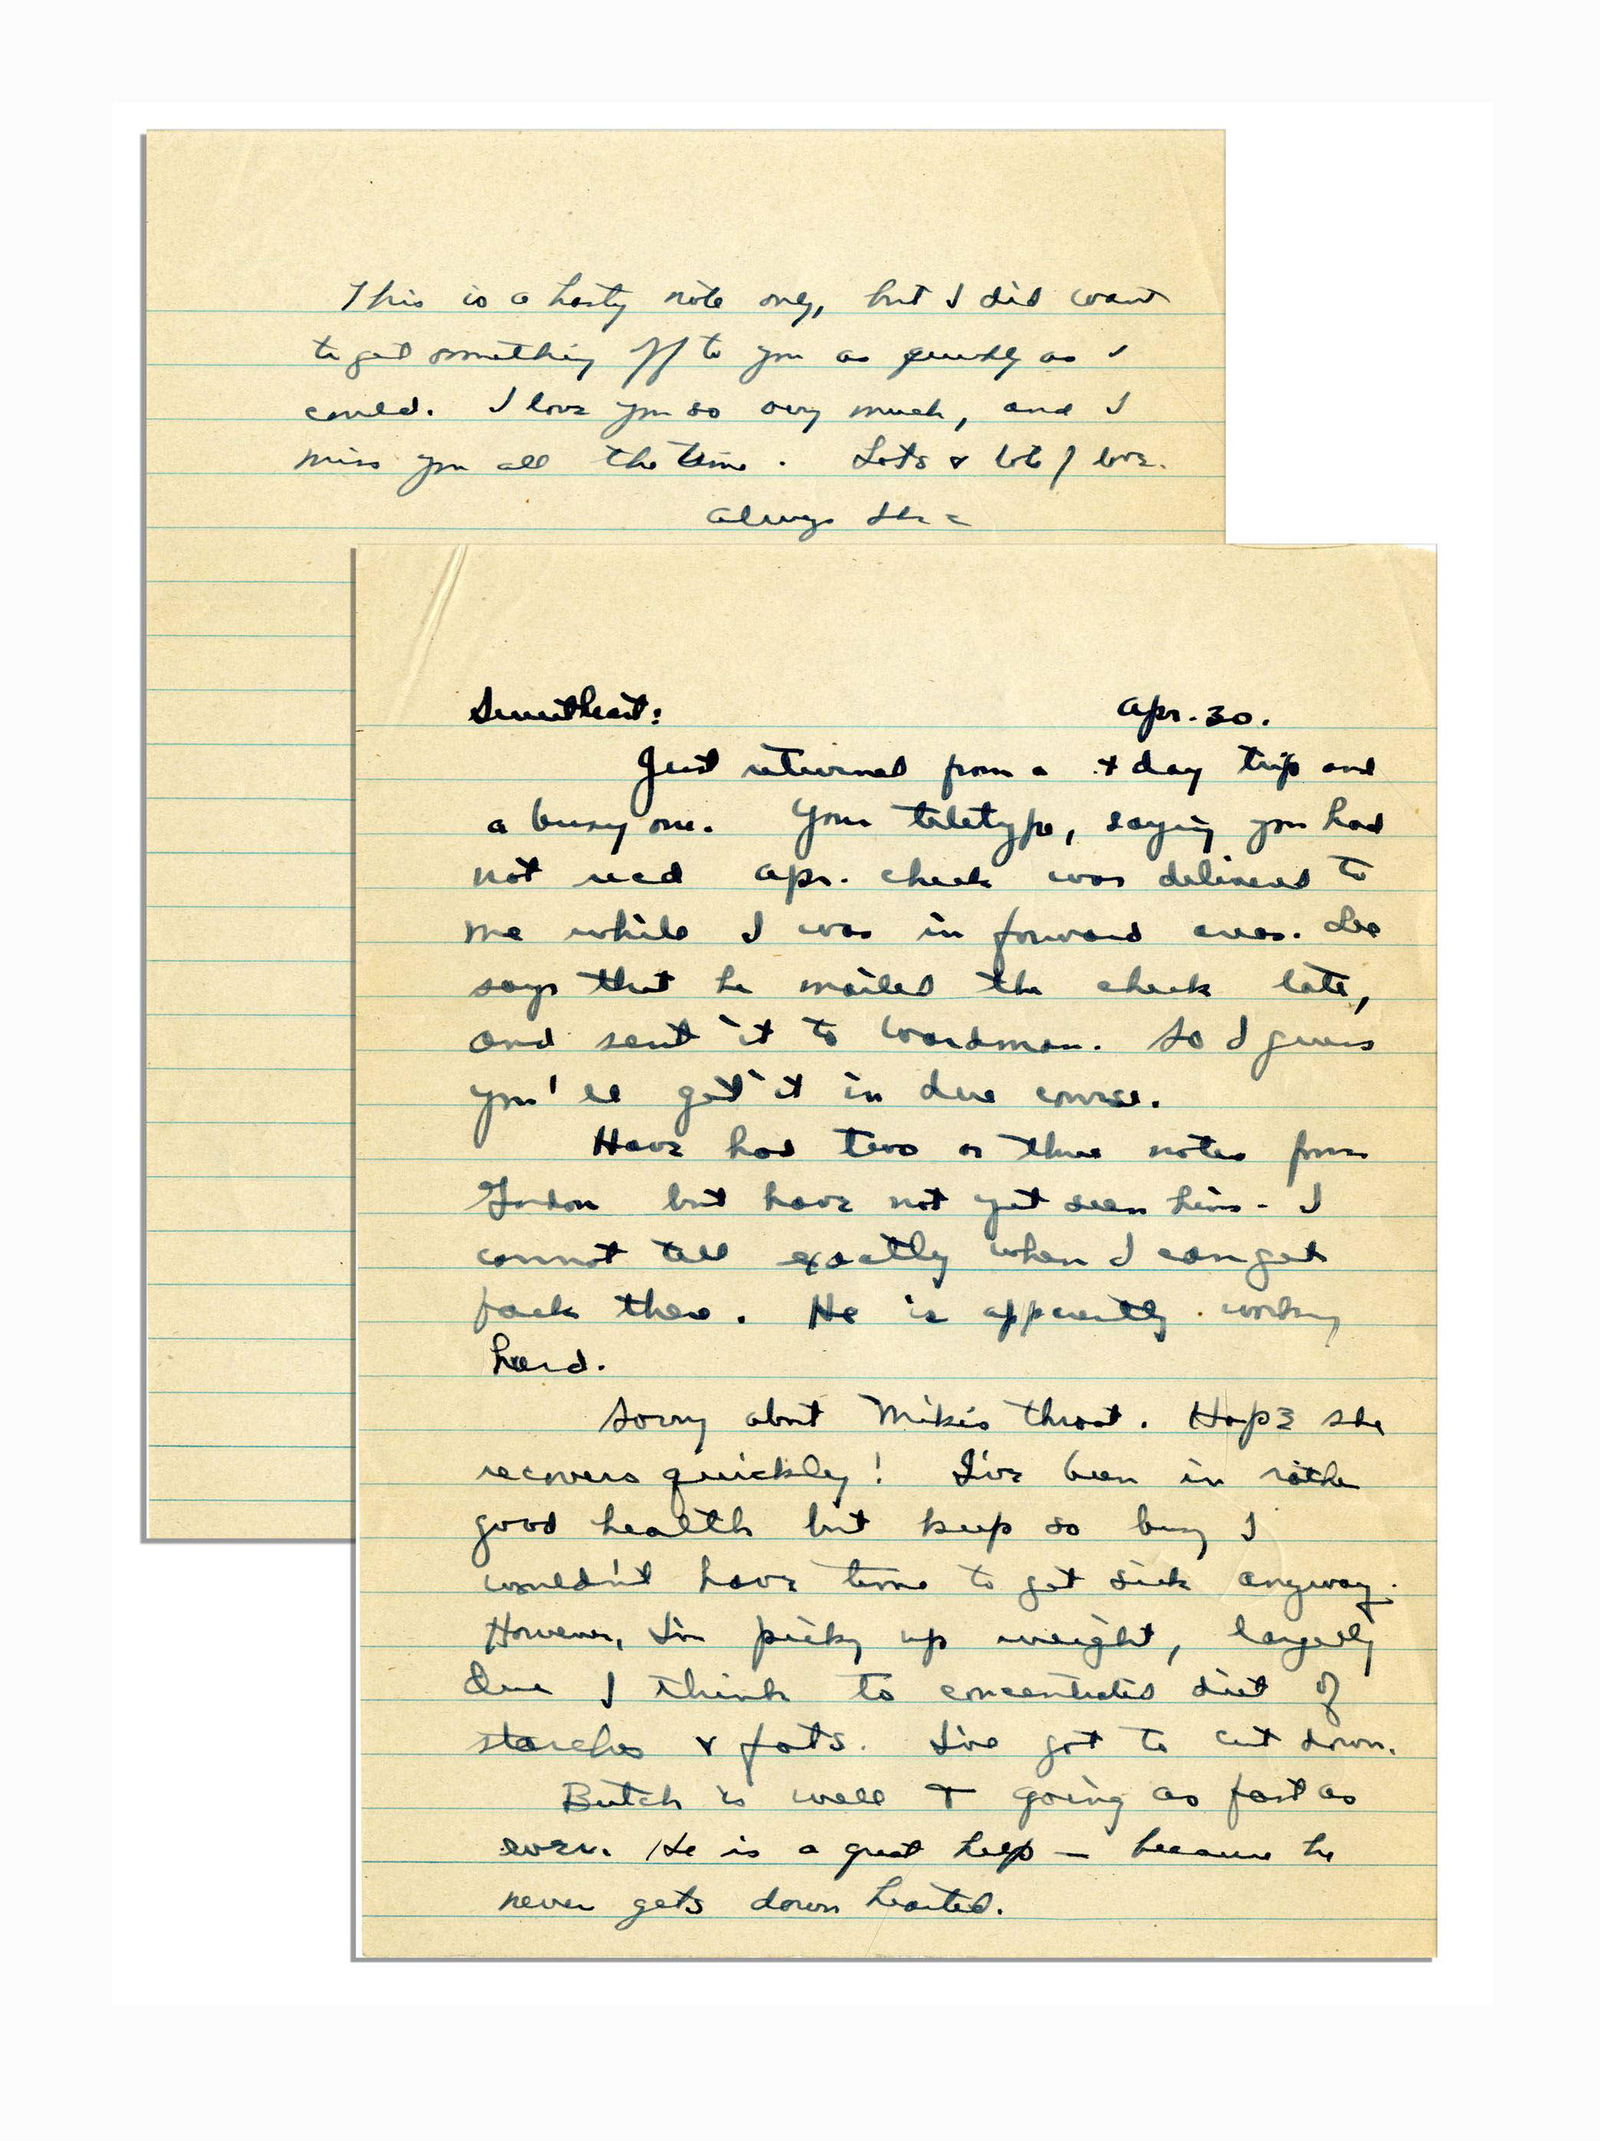 Sweetheart: Apr. 30.
Just returned from a 4 day trip and
a busy one. Your teletype, saying you had
not recd Apr. check was delivered to
me while I was in forward areas. Lee
says that he mailed the check late,
and sent it to Wardman. So I guess
you'll get it in due course.
Have had two or three notes from
Gordon but have not yet seen him. I
cannot tell exactly when I can get
back there. He is apparently working
hard.
Sorry about Mike's throat. Hope she
recovers quickly! I've been in rather
good health but keep so busy I
wouldn't have time to get sick anyway.
However, I'm picky up weight, largely
due I think to concentrated diet of
starches & fats. I've got to cut down.
Butch is well & going as fast as
ever. He is a great help — because he
never gets down hearted.
This is a hasty note only, but I did want
to get something off to you as quickly as I
could. I love you so very much, and I
miss you all the time. Lots & lots of love.
Always